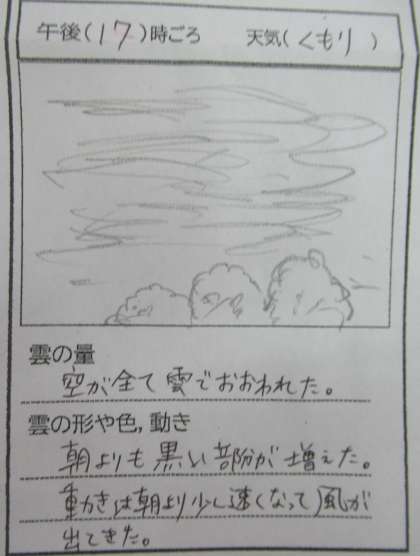 午後(17)時ごろ 天気(くもり)
雲の量
空が全て雲でおおわれた。
雲の形や色,動き
朝よりも黒い部分が増えた。
動きは朝より少し速くなって風が
出てきた。